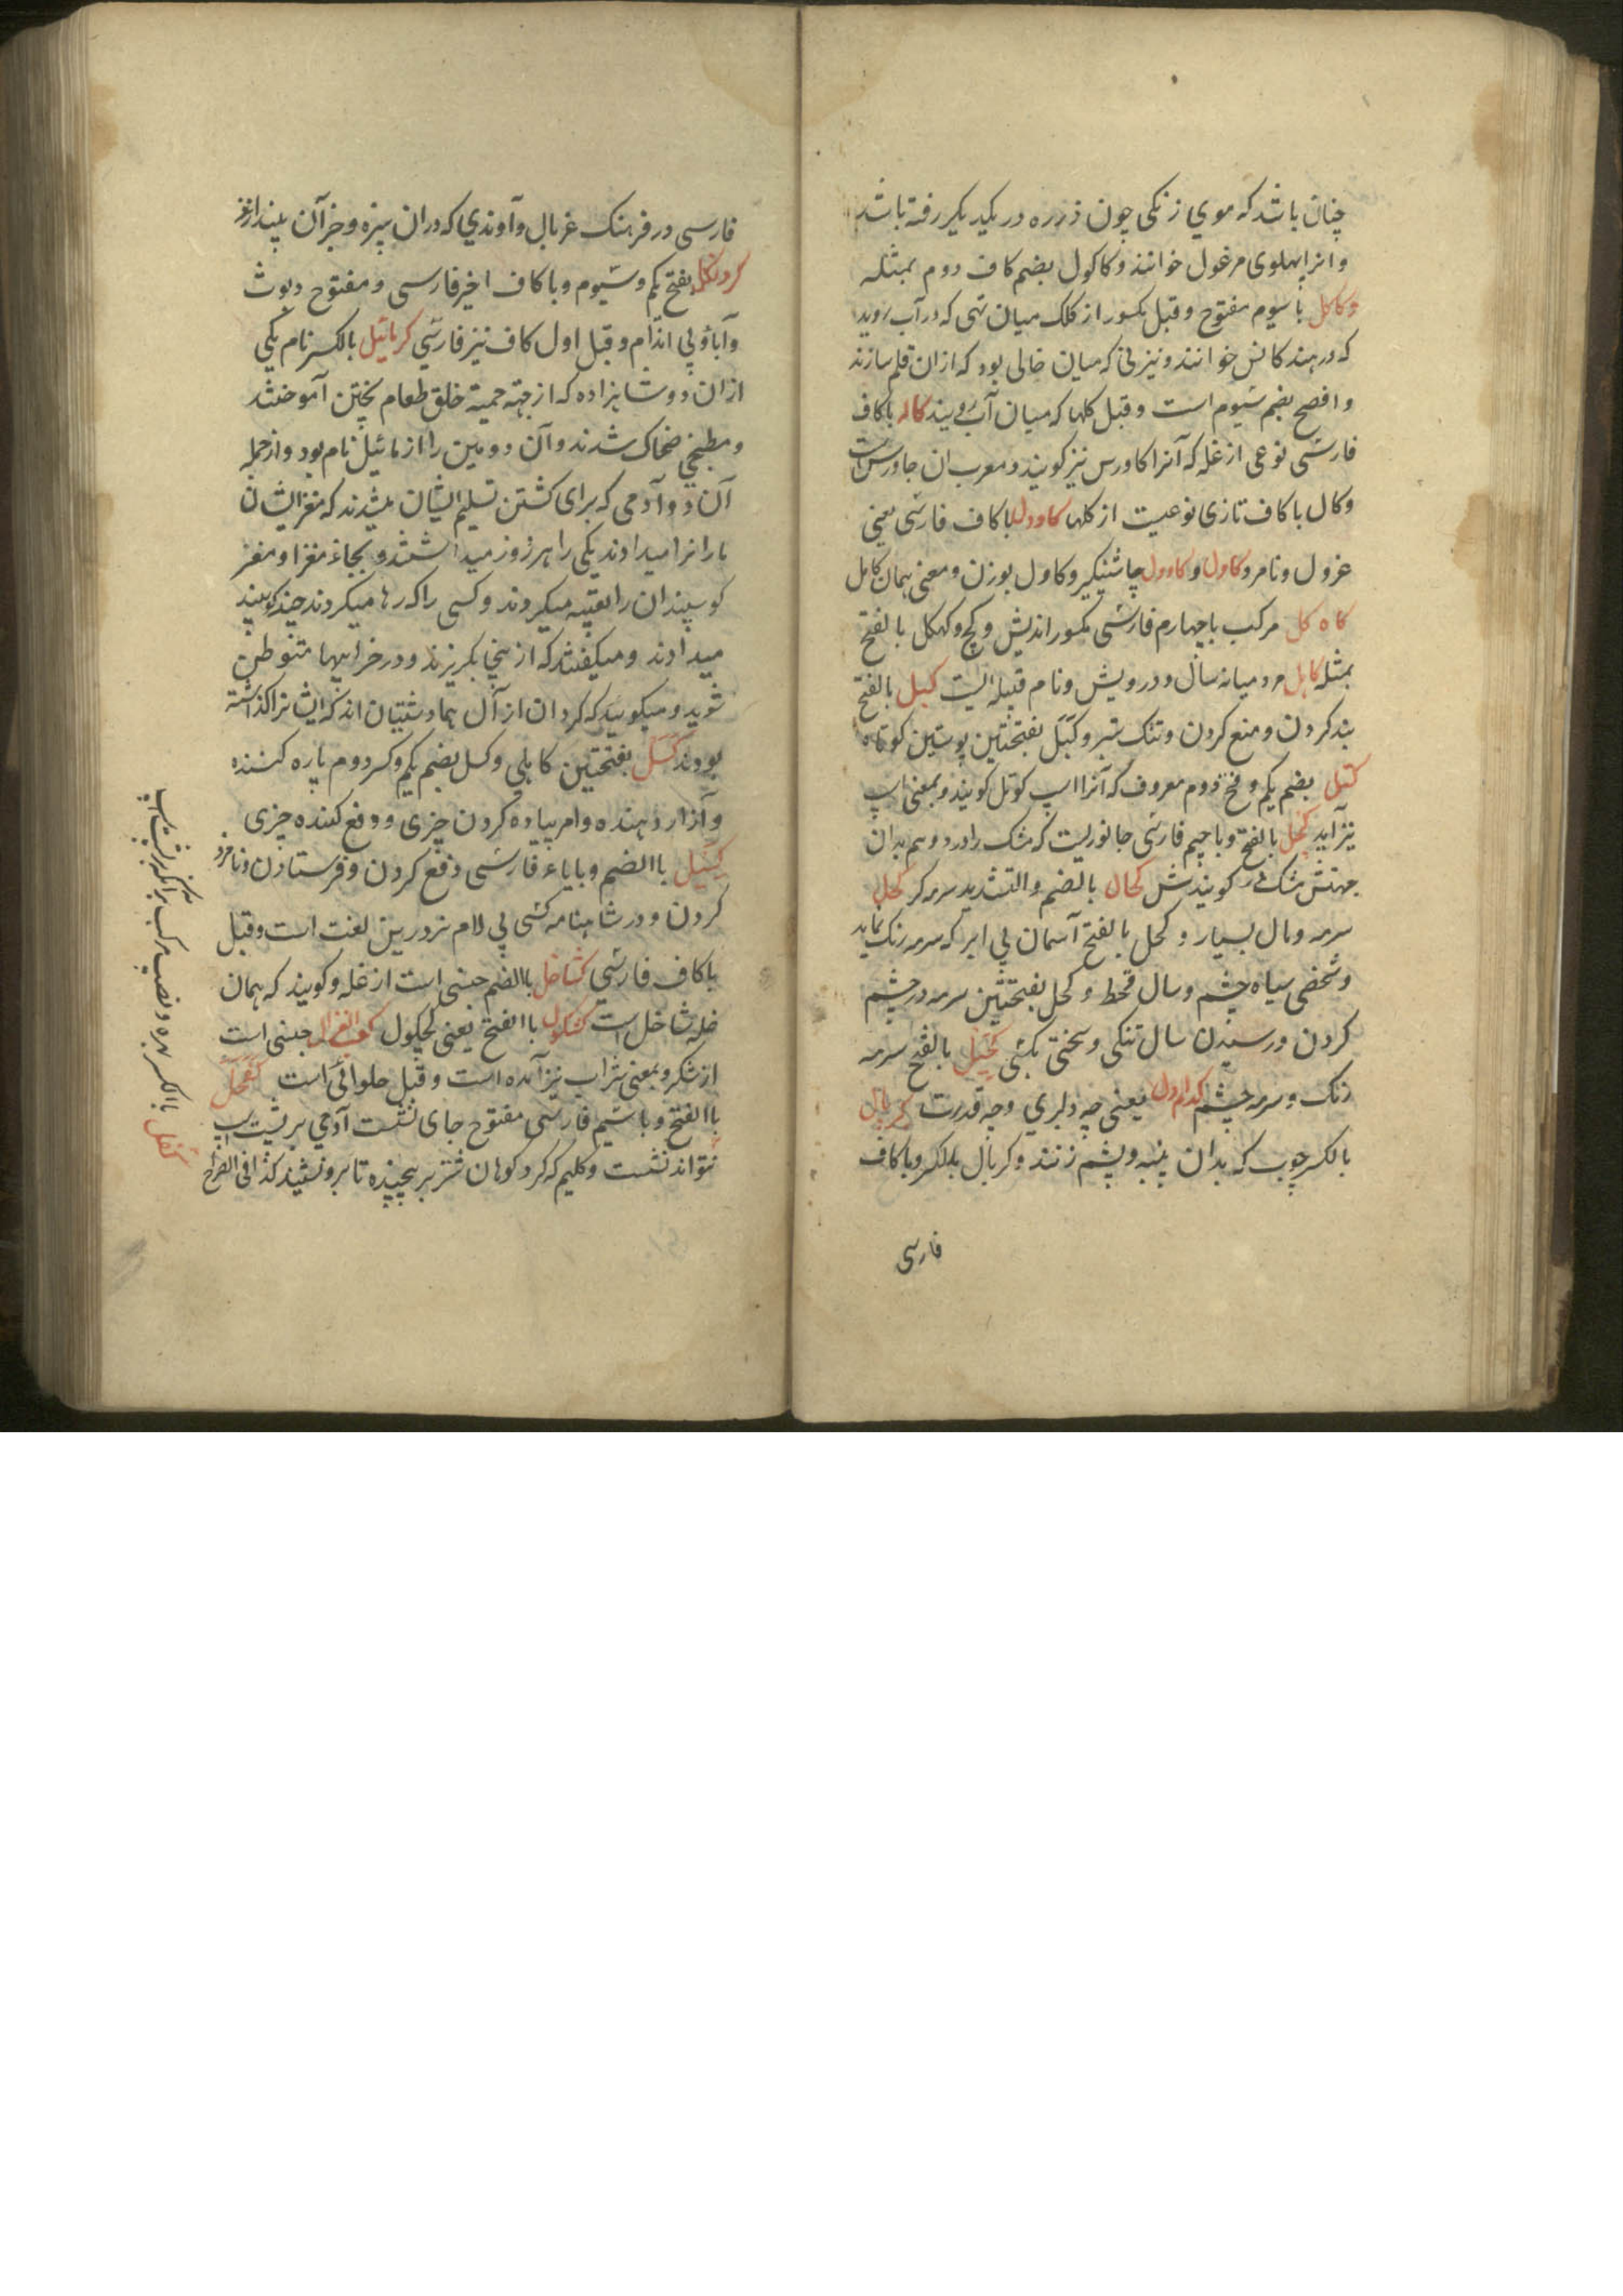 چنان باشد که موی زنکی چون ذرره در یکدیکر رفته باشد
و انرا پهلوی مرغول خوانند و کاکول بضم کاف دوم بمثله
و کاکل با سیوم مفتوح و قبل مکسور از کلک میان تهی که در آب روید
که در هند کانس خوانند و نیز نی که میان خالی بود که از ان قلم سازند
و افصح بضم سیوم است و قبل کلها که میان آب رویند کاله باکاف
فارسی نوعی از غله که آنرا کاورس نیز کویند و معرب ان جاورس است
و کال با کاف تازی نوعیست از کلها کاودل باکاف فارسی یعنی
غرول و نامرد کاول و کاوول چاشنیکیر و کاول بوزن و معنی همان کابل
کاه کل مرکب باچهارم فارسی مکسور اندیش و کچ و کهکل بالفتح
بمثله کابل مرد میانه سال و درویش و نام قبیله ایست کبل بالفتح
بند کردن و منع کردن و تنک ستبر و کَبَل بفتحتین پوستین کوتاه
کتل بضم یکم و فتح دوم معروف که آنرا اسپ کوتل کویند و بمعنی اسپ
نیز آید کچل بالفتح و با جیم فارسی جانوریست که مشک را درد و هم بدان
جهتش مشک کویندش کحال بالضم و التشدید سرمه کر کحل
سرمه و مال بسیار و کحل بالفتح آسمان بی ابر که سرمه رنک نماید
و شخصی سیاه چشم و سال قحط و کحل بفتحتین سرمه در چشم
کردن و رسیدن سال تنکی و سختی بکسی کحیل بالفتح سرمه
رنک و سرمه چشم کدام دل یعنی چه دلبری و چه قدرت کربال
بالکسر چوب که بدان پنبه و پشم زنند و کربال بالکسر و باکاف
فارسی
فارسی در فرهنک غربال و آوندی که در ان سبزه و جز آن بپندازند
کردنکل بفتح یکم و سیوم و باکاف اخیر فارسی و مفتوح دیوث
و آباؤ بی اندام و قبل اول کاف نیز فارسی کرمائیل بالکسر نام یکی
از ان دو شاهزاده که از جهته حمیة خلق طعام پختن آموختند
و مطبخی ضحاک شدند و آن دومین را ازمائیل نام بود و از جمله
آن دو آدمی که برای کشتن تسلیم ایشان میشدند که مغز ایشان
مارانرا میدادند یکی را هر روز میداشتند و بجاء مغز او مغز
کوسپندان را بقیه میکردند و کسی را که رها میکردند چند کوسپند
میدادند و میکفتند که از ینجا بکریزند و در خرابیها متوطن
شوید و میکویند که کردان از آل بهمادشتیان اند که ایشانرا کذاشته
بودند کَسَل بفتحتین کاهلی و کسل بضم یکم و کسر دوم پاره کننده
و آزار دهنده و امر پیاده کردن چیزی و دفع کننده چیزی
کسیل باالضم و بایاء فارسی دفع کردن و فرستادن و نامزد
کردن و در شاهنامه کسی بی لام نیز درین لغت است و قبل
باکاف فارسی کشاخل باالضم جنسی است از غله و کویند که همان
غله شاخل است کشکول باالفتح یعنی کچکول کعب الغزال جنسی است
از شکر و بمعنی شراب نیز آمده است و قبل حلوائی است کفچل
باالفتح و با سیم فارسی مفتوح جای نشست آدمی بر پشت اسپ
نتواند نشست و کلیم که کرد کوهان شتر بر پیچیده تا برو نشیند کذافی الصراح
کفل باالکسر بهره و نصیب